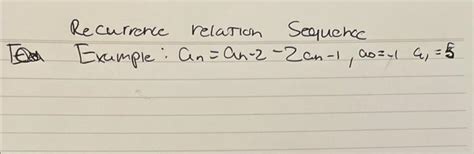 Recurrence relation Sequence
Example: an = an-2 - 2an-1, a0=-1 a1=5